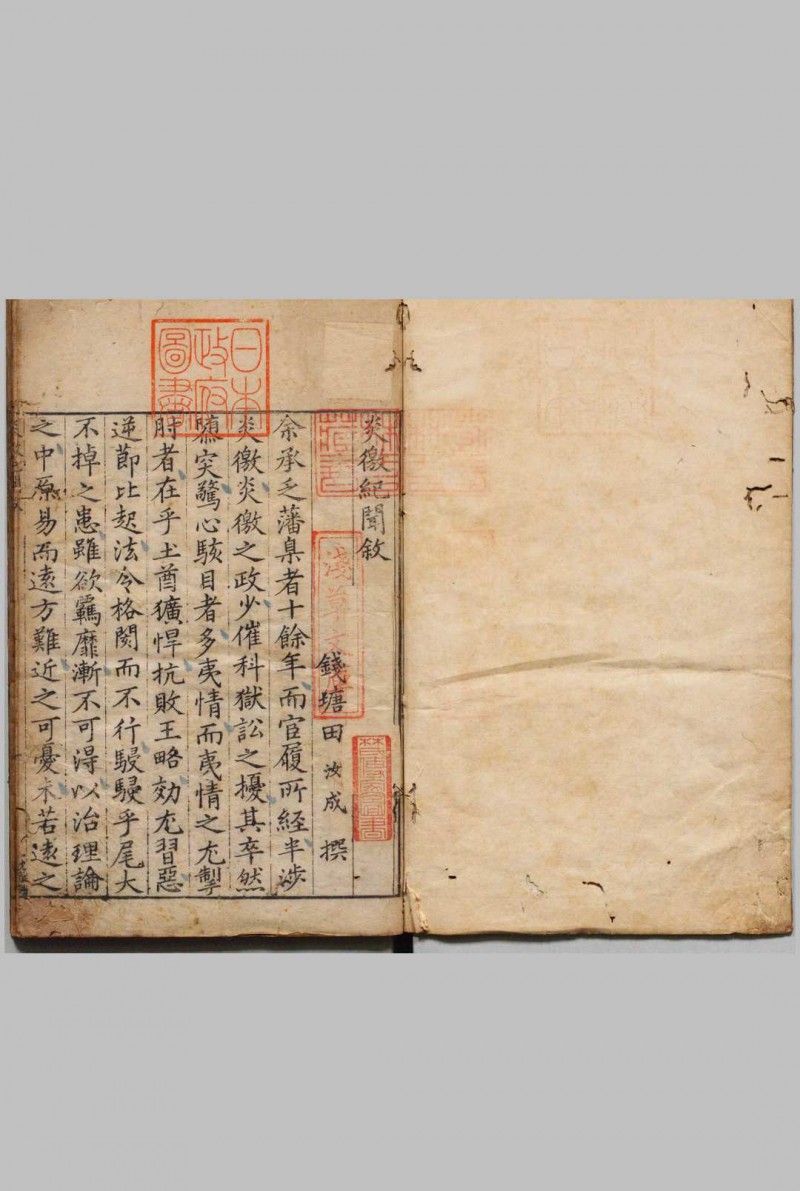 炎徼紀聞敘
錢塘田汝成撰
余承乏藩臬者十餘年而宦履所經半涉
炎徼炎徼之政少催科獄訟之擾其卒然
隳突驚心駭目者多夷情而夷情之尤掣
肘者在乎土酋獷悍抗敗王略効尤習惡
逆節比起法令格閡而不行駸駸乎尾大
不掉之患雖欲羈靡漸不可得以治理論
之中原易而遠方難近之可憂未若遠之
日本政府圖書
淺草文庫